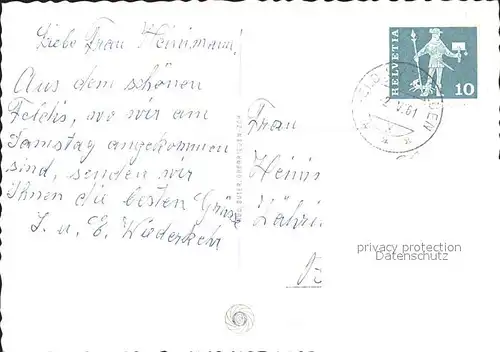 Liebe Frau Heinimann!
Aus dem schönen
Feldis, wo wir am
Samstag angekommen
sind, senden wir
Ihnen die besten Grüsse
J. u. E. Wiederkehr
HELVETIA
10
2.V.61
Frau
Heinim
Zähri
privacy protection
Datenschutz